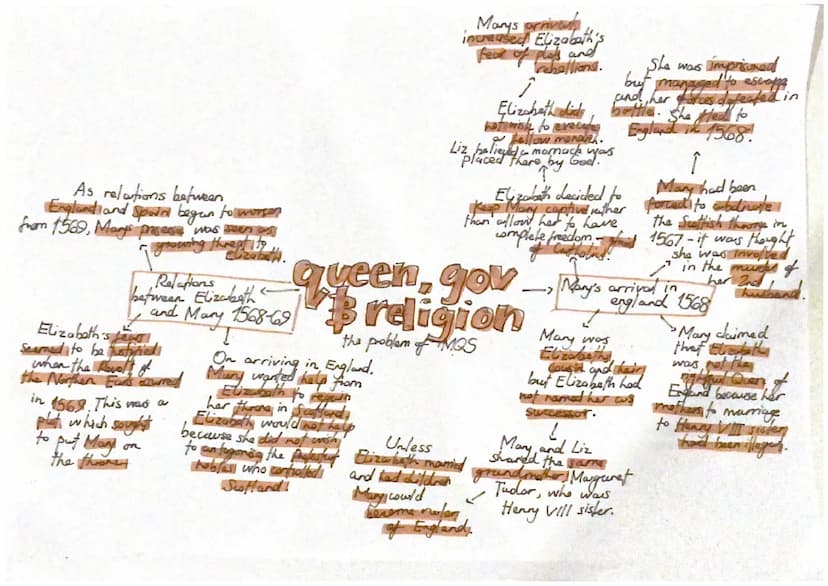 queen, gov
& religion
the problem of MQS
Mary's arrival in
england 1568
Mary had been
forced to abdicate
the Scottish throne in
1567 - it was thought
she was involved
in the murder of
her 2nd
husband.
She was imprisoned
but managed to escape
and her forces defeated in
battle. She fled to
England in 1568.
Elizabeth decided to
keep Mary captive rather
than allow her to have
complete freedom
Elizabeth did
not wish to execute
a fellow monarch.
Liz believed a monarch was
placed there by God.
Marys arrival
increased Elizabeth's
fear of plots and
rebellions.
Mary was
Elizabeths
cousin and heir
but Elizabeth had
not named her as
successor.
Mary and Liz
shared the same
grandmother, Margaret
Tudor, who was
Henry VIII sister.
Unless
Elizabeth married
and had children
Mary could
become ruler
of England.
Mary claimed
that Elizabeth
was not the
rightful Queen of
England because her
mothers to marriage
to Henry VIII sister
had been illegal.
Relations
between Elizabeth
and Mary 1568-69
As relations between
England and Spain began to worsen
from 1569, Marys presence was seen as
growing threat to
Elizabeth.
Elizabeth's fears
seemed to be justified
when the Revolt of
the Northern Earls occurred
in 1569. This was a
plot which sought
to put Mary on
the throne.
On arriving in England,
Mary wanted help from
Elizabeth to regain
her throne in Scotland.
Elizabeth would not help
because she did not wish
to antagonise the Protestant
nobles who controlled
Scotland.